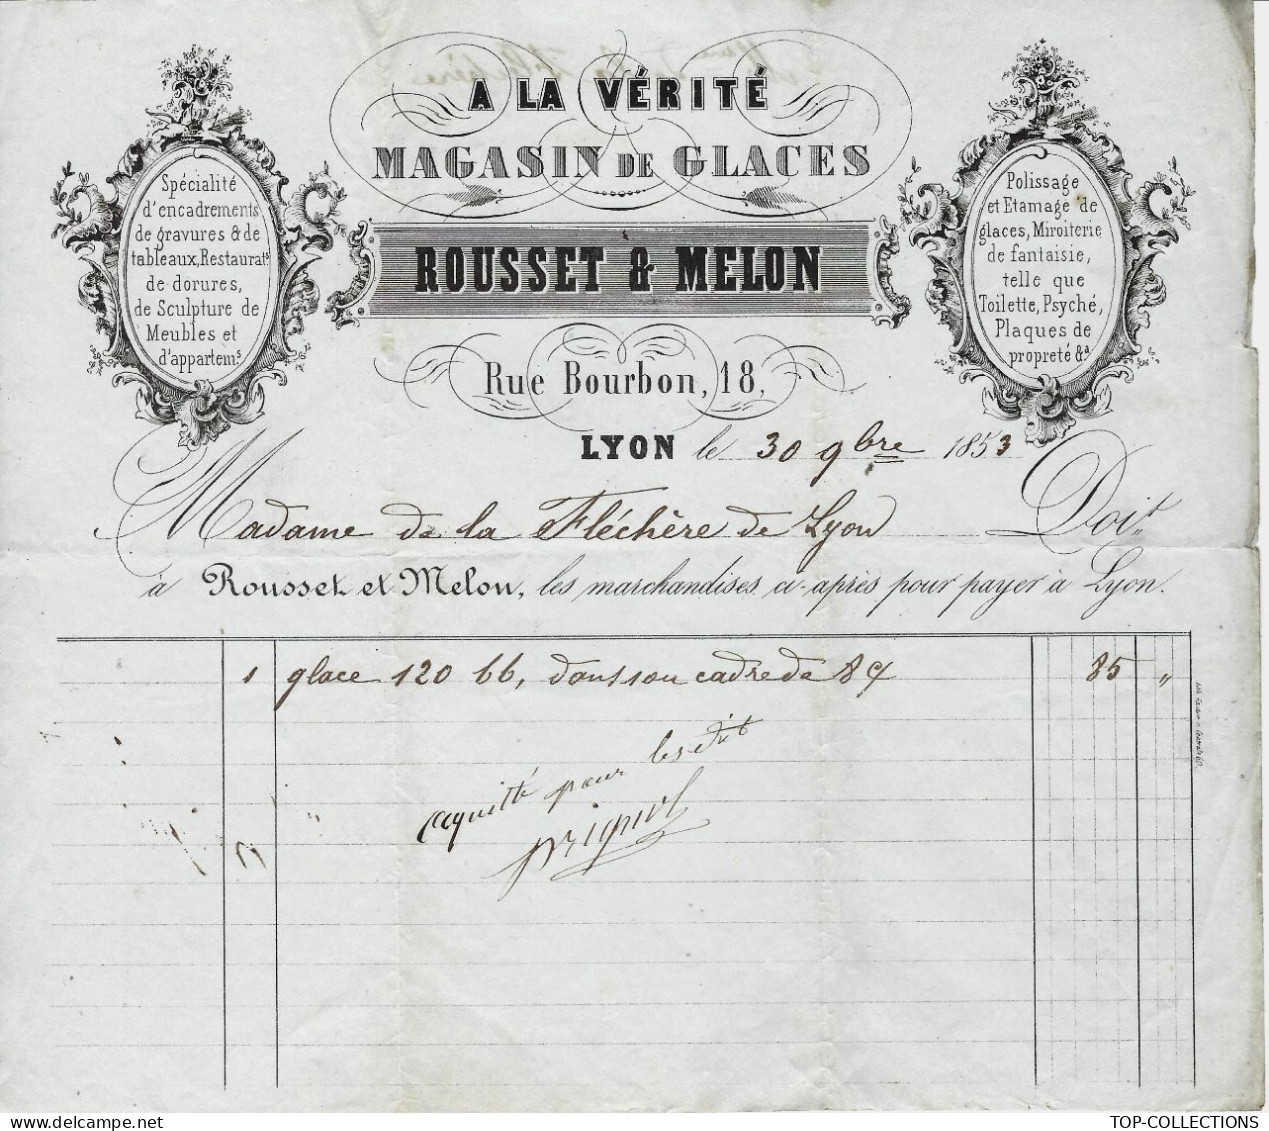 A LA VÉRITÉ
MAGASIN DE GLACES
ROUSSET & MELON
Rue Bourbon, 18,
Spécialité
d'encadrements
de gravures & de
tableaux, Restaurat.s
de dorures,
de Sculpture de
Meubles et
d'appartem.s
Polissage
et Etamage de
glaces, Miroiterie
de fantaisie,
telle que
Toilette, Psyché,
Plaques de
propreté &a
LYON le 30 9bre 1853
Madame de la Fléchère de Lyon Doit
à Rousset et Melon, les marchandises ci-après pour payer à Lyon.
1 glace 120 66, dans son cadre de 84 85 "
acquitté pour les dit
TOP-COLLECTIONS